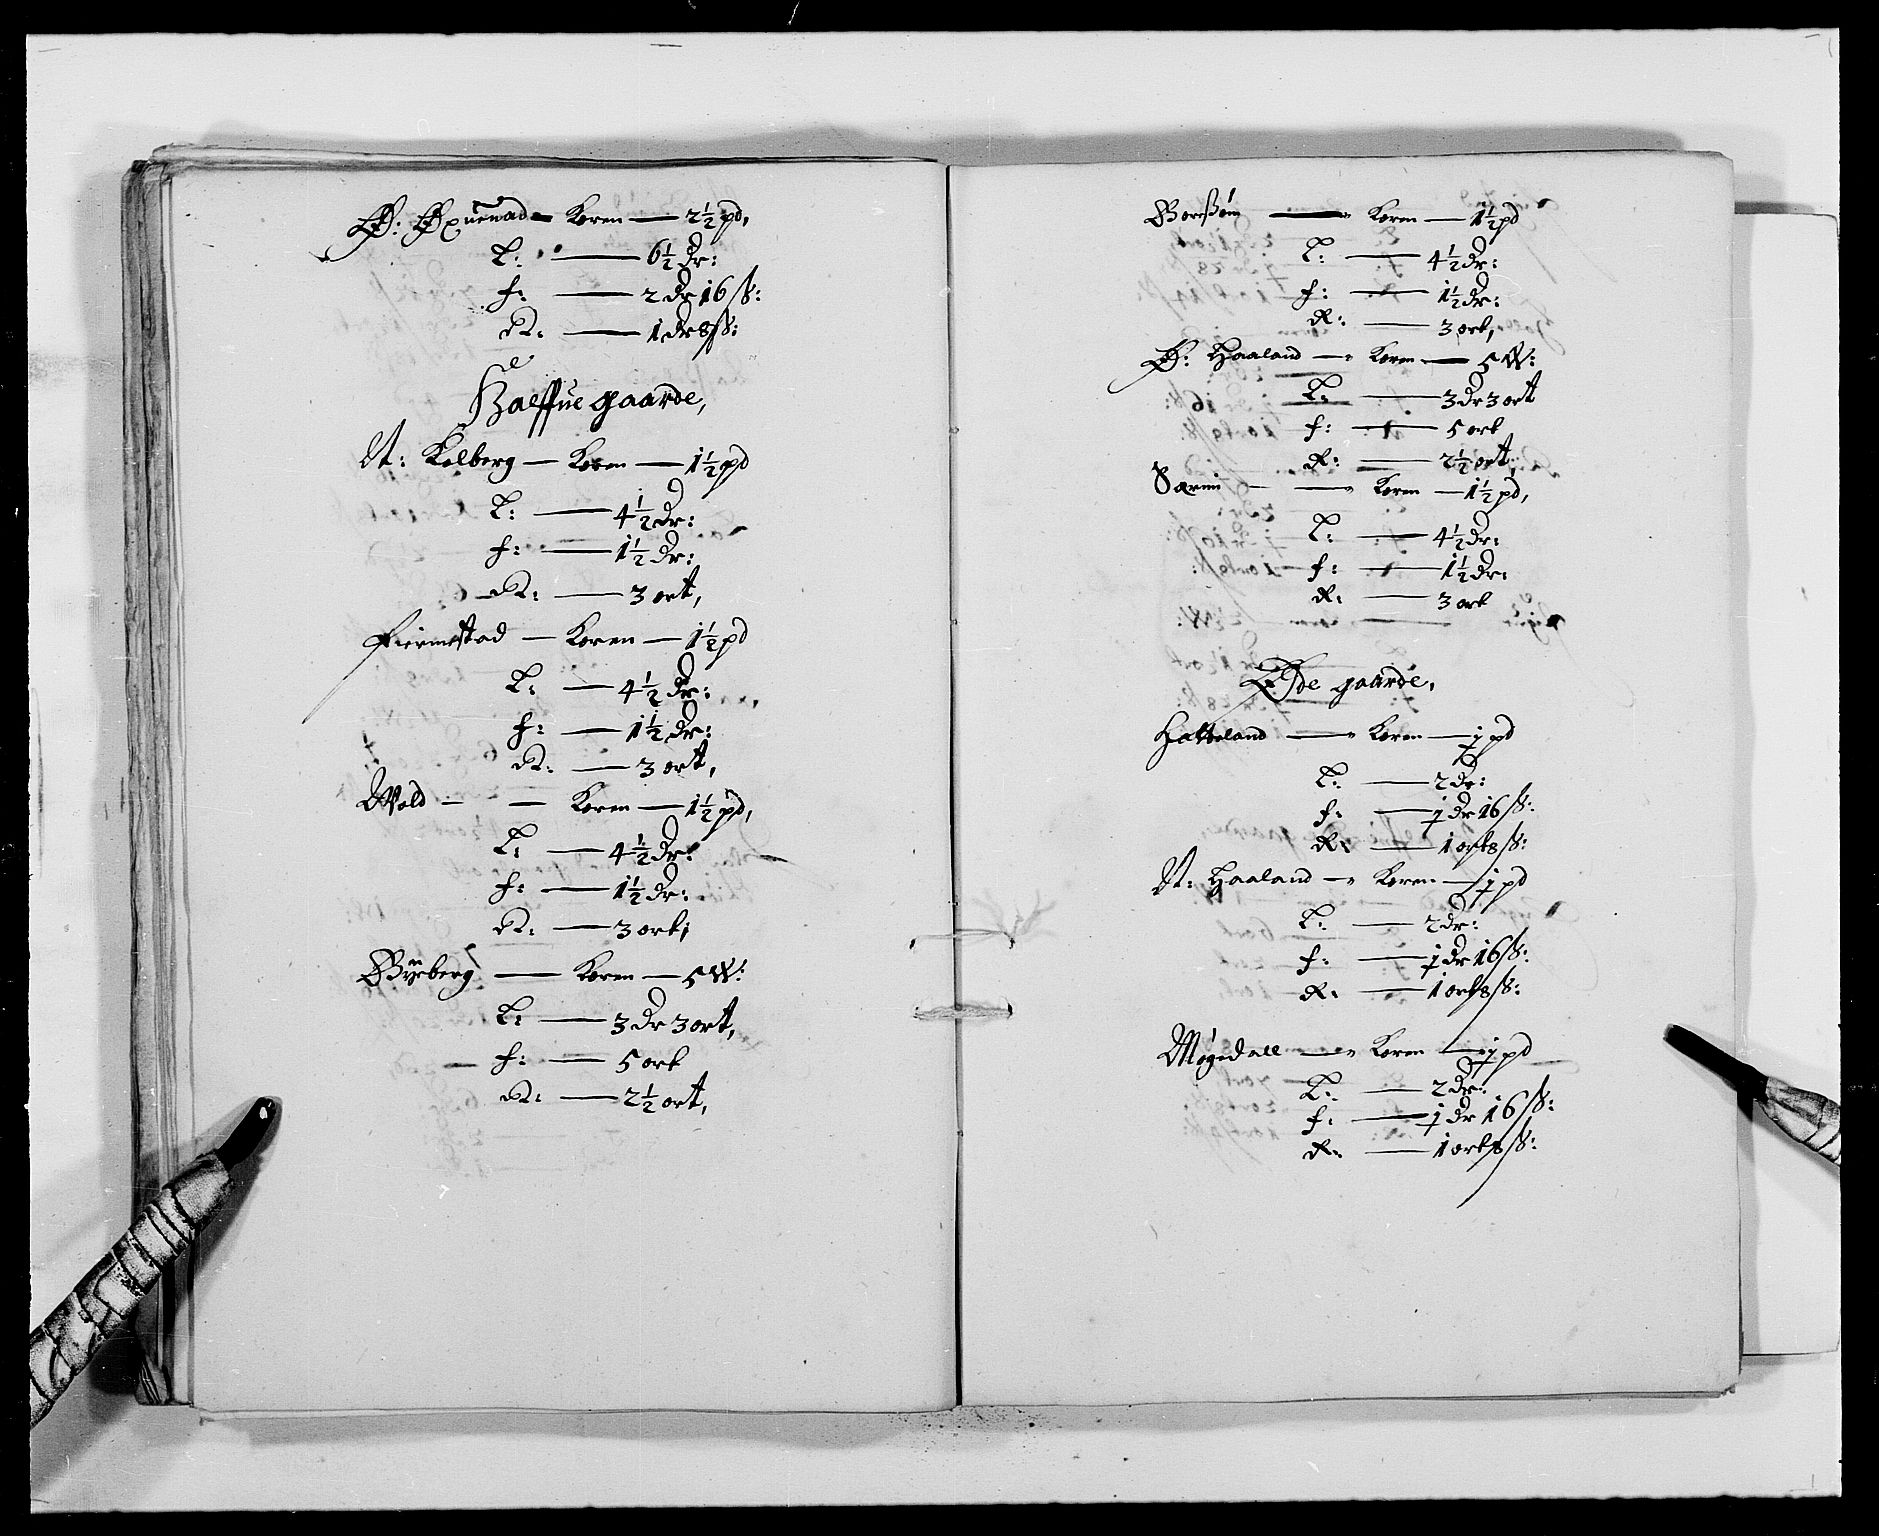 Ø: Øxnevad — Koren — 2½ pd,
L: — 6½ dr:
f: — 2 dr 16 ß:
R: — 1 dr 8 ß:
Halffue gaarde,
N: Kolberg — Koren — 1½ pd
L: — 4½ dr:
f: — 1½ dr:
R: — 3 ort,
Fiermestad — Koren — 1½ pd
L: — 4½ dr:
f: — 1½ dr:
R: — 3 ort,
Wold — — Koren — 1½ pd,
L: — 4½ dr:
f: — 1½ dr:
R: — 3 ort,
Byeberg — Koren — 5 W:
L: — 3 dr 3 ort,
f: — 5 ort
R: — 2½ ort,
Koren — 1½ pd
L: — 4½ dr:
f: — 1½ dr:
R: — 3 ort,
Ø: Haaland — Koren — 5 W:
L: — 3 dr 3 ort
f: — 5 ort
R: — 2½ ort,
— Koren — 1½ pd,
L: — 4½ dr:
f: — 1½ dr:
R: — 3 ort
Øde gaarde,
Hatteland — Koren — j pd
L: — 2 dr:
f: — j dr 16 ß:
R: — 1 ort 8 ß:
N: Haaland — Koren — j pd
L: — 2 dr:
f: — j dr 16 ß:
R: — 1 ort 8 ß:
Møgedall — Koren — j pd
L: — 2 dr:
f: — j dr 16 ß:
R: — 1 ort 8 ß: